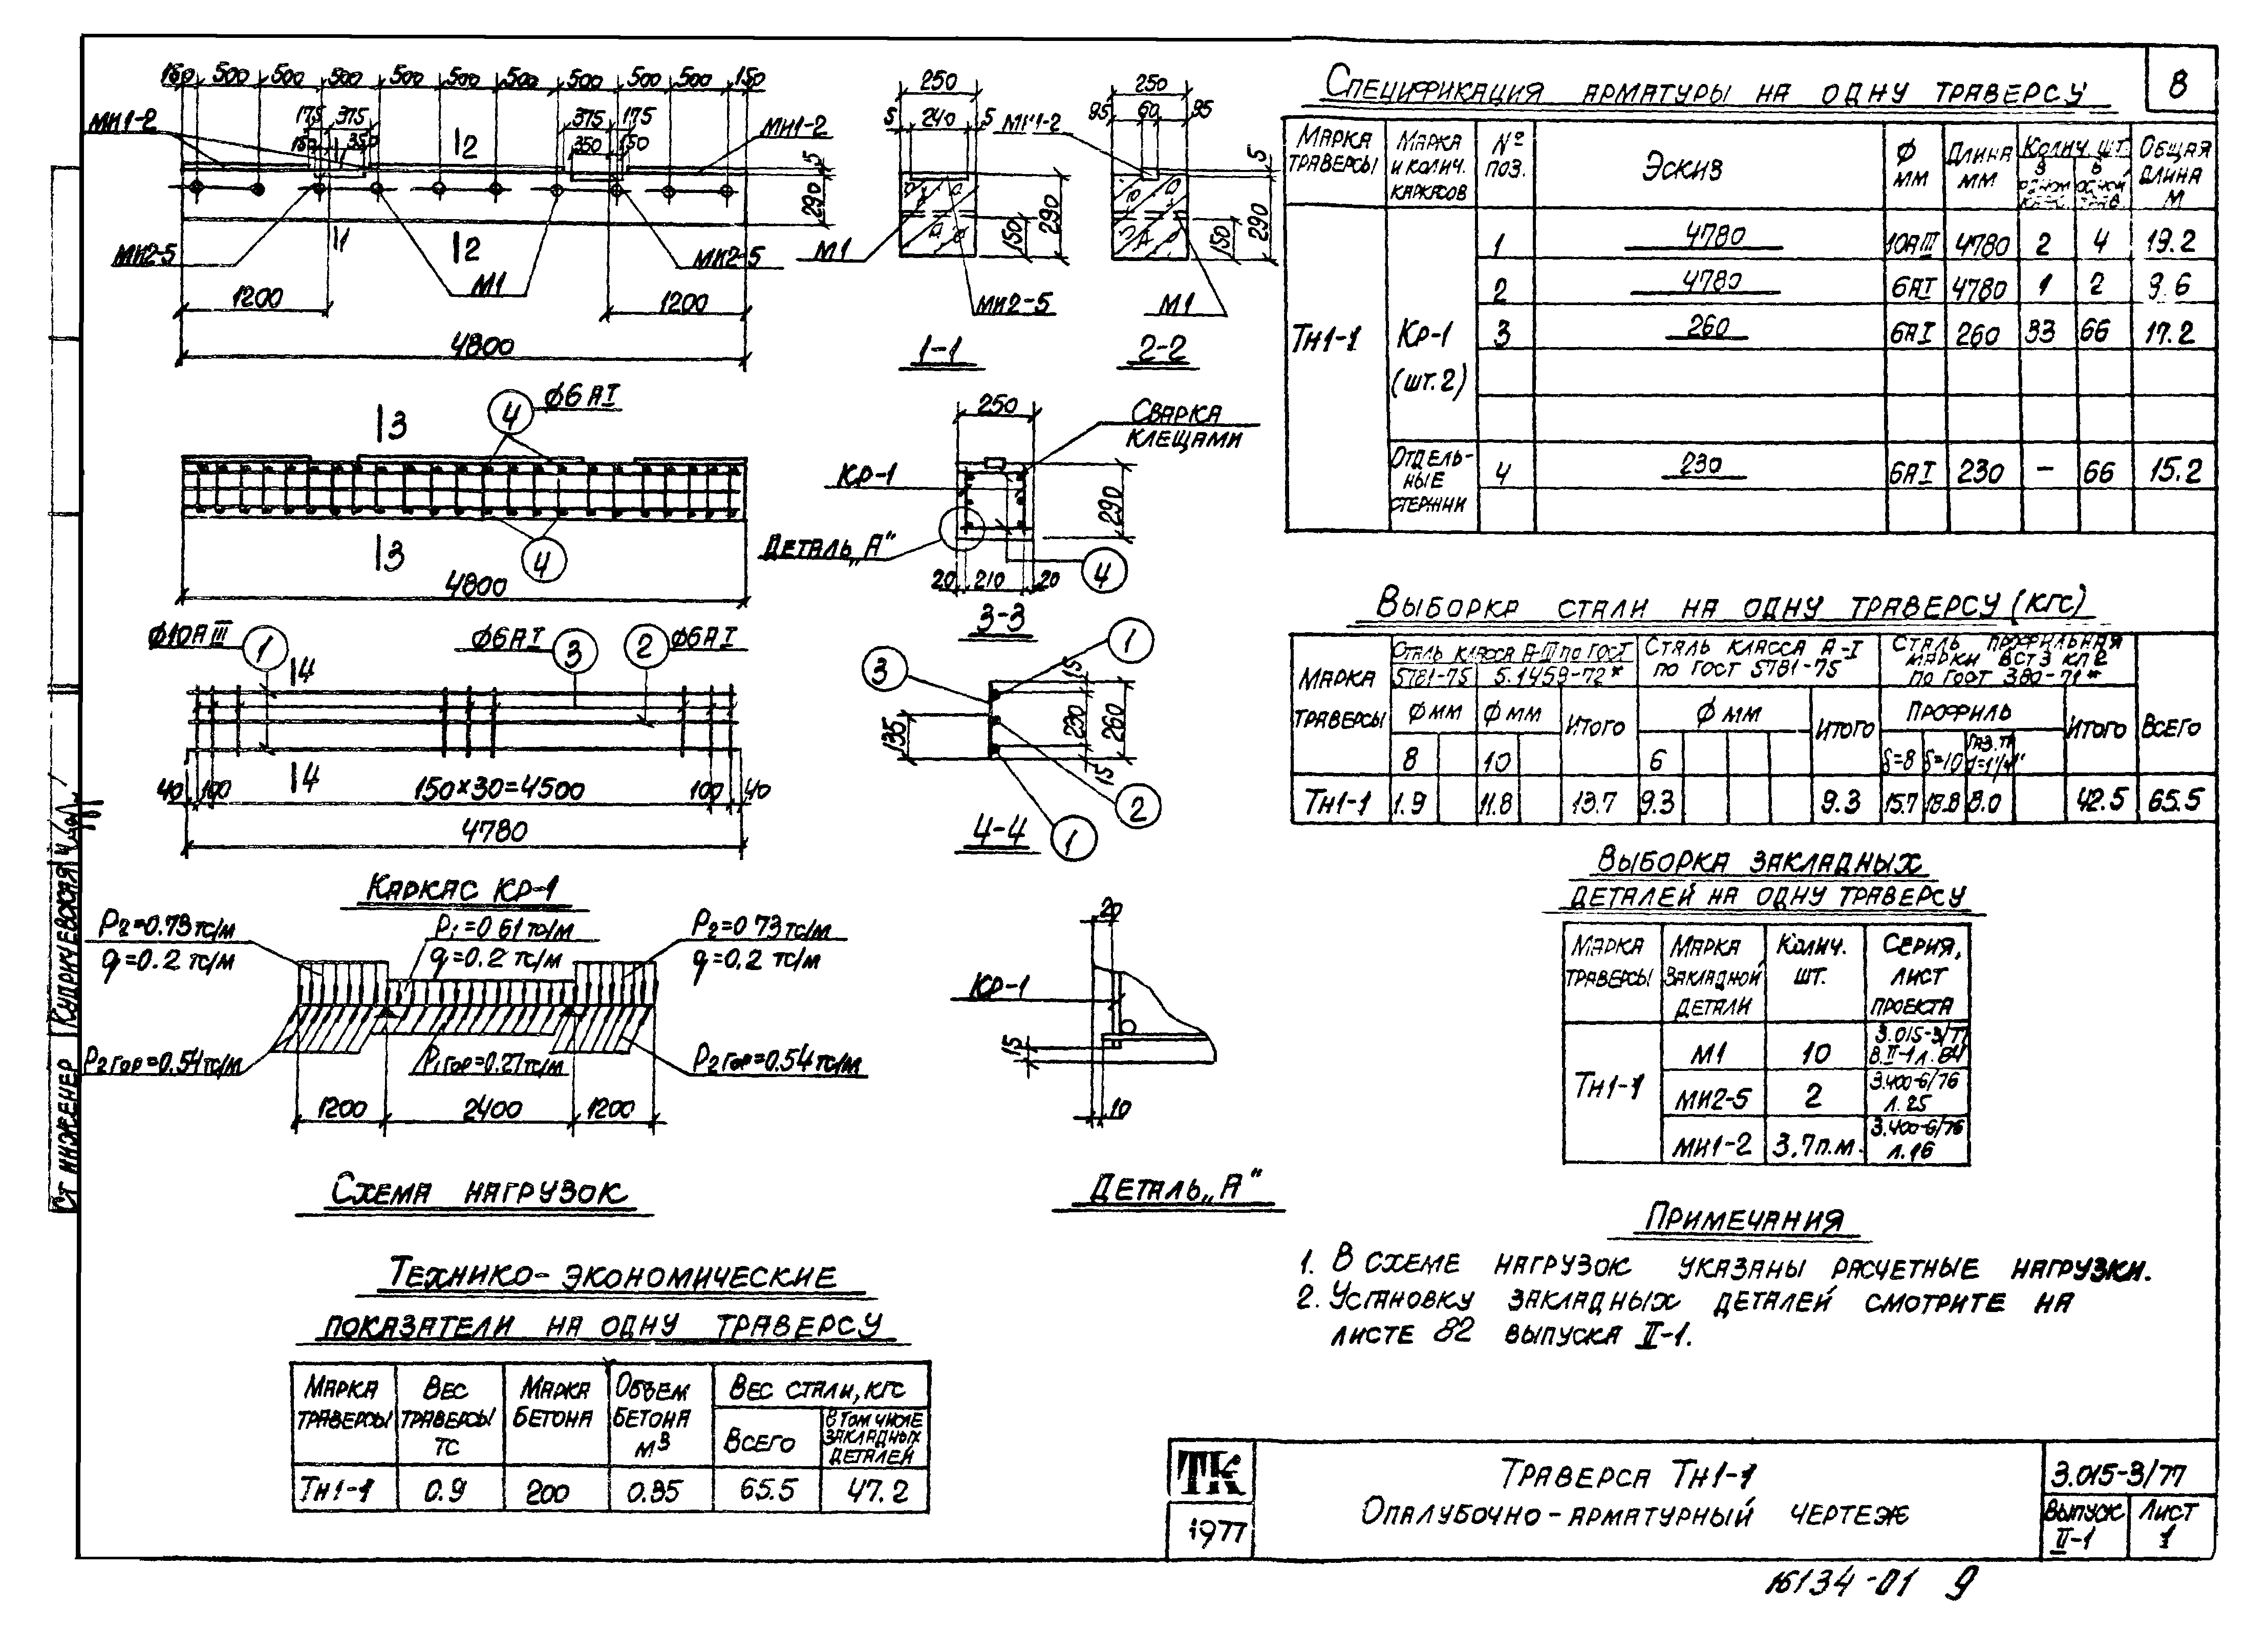 8
150 500 500 500 500 500 500 500 500 500 150
175 375 375 175
МИ1-2 МИ1-2
150 350 350 150
1 2
5
290
МИ2-5 М1 МИ2-5
1 2
1200 1200
4800
250
5 240 5
М1
150
290
МИ2-5
1-1
250
95 60 95
МИ1-2
5
150
290
М1
2-2
3
4 ф6АI
3
4
4800
250
Сварка
клещами
КР-1
290
Деталь „А"
20 210 20
4
3-3
ф10АIII 1 ф6АI 3 2 ф6АI
4
4
40 100 150×30=4500 100 40
4780
Каркас КР-1
3 1
135
15
230
260
15
2
1
4-4
P2=0.73 тс/м P1=0.61 тс/м P2=0.73 тс/м
q=0.2 тс/м q=0.2 тс/м q=0.2 тс/м
P2гор=0.54 тс/м P1гор=0.27 тс/м P2гор=0.54 тс/м
1200 2400 1200
Схема нагрузок
20
КР-1
15
10
Деталь „А"
Технико-экономические
показатели на одну траверсу
Марка траверсы Вес траверсы тс Марка бетона Объем бетона м3 Вес стали, кгс
Всего В том числе закладных деталей
Тн1-1 0.9 200 0.35 65.5 47.2
Спецификация арматуры на одну траверсу
Марка траверсы Марка и колич. каркасов № поз. Эскиз ф мм Длина мм Колич. шт. Общая длина м
Тн1-1 Кр-1 (шт. 2)
1 4780 10АIII 4780 2 4 19.2
2 4780 6АI 4780 1 2 9.6
3 260 6АI 260 33 66 17.2
Отдель-
ные
стержни
4 230 6АI 230 – 66 15.2
Выборка стали на одну траверсу (кгс)
Марка траверсы Сталь класса А-III по ГОСТ 5781-75 5.1459-72* Сталь класса А-I по ГОСТ 5781-75 Сталь профильная марки ВСТ3 кп2 по ГОСТ 380-71* Всего
ф мм ф мм Итого ф мм Итого Профиль Итого
8 10 6 δ=8 δ=10
Тн1-1 1.9 11.8 13.7 9.3 9.3 15.7 18.8 8.0 42.5 65.5
Выборка закладных
деталей на одну траверсу
Марка траверсы Марка закладной детали Колич. шт. Серия, лист проекта
Тн1-1
М1 10 3.015-3/77 В.II-1 л.84
МИ2-5 2 3.400-6/76 л.25
МИ1-2 3.7п.м. 3.400-6/76 л.16
Примечания
1. В схеме нагрузок указаны расчетные нагрузки.
2. Установку закладных деталей смотрите на
листе 82 выпуска II-1.
ТК
1977
Траверса Тн1-1
Опалубочно-арматурный чертеж
3.015-3/77
Выпуск II-1
Лист 1
16134-01 9
Ст инженер Кудричевская